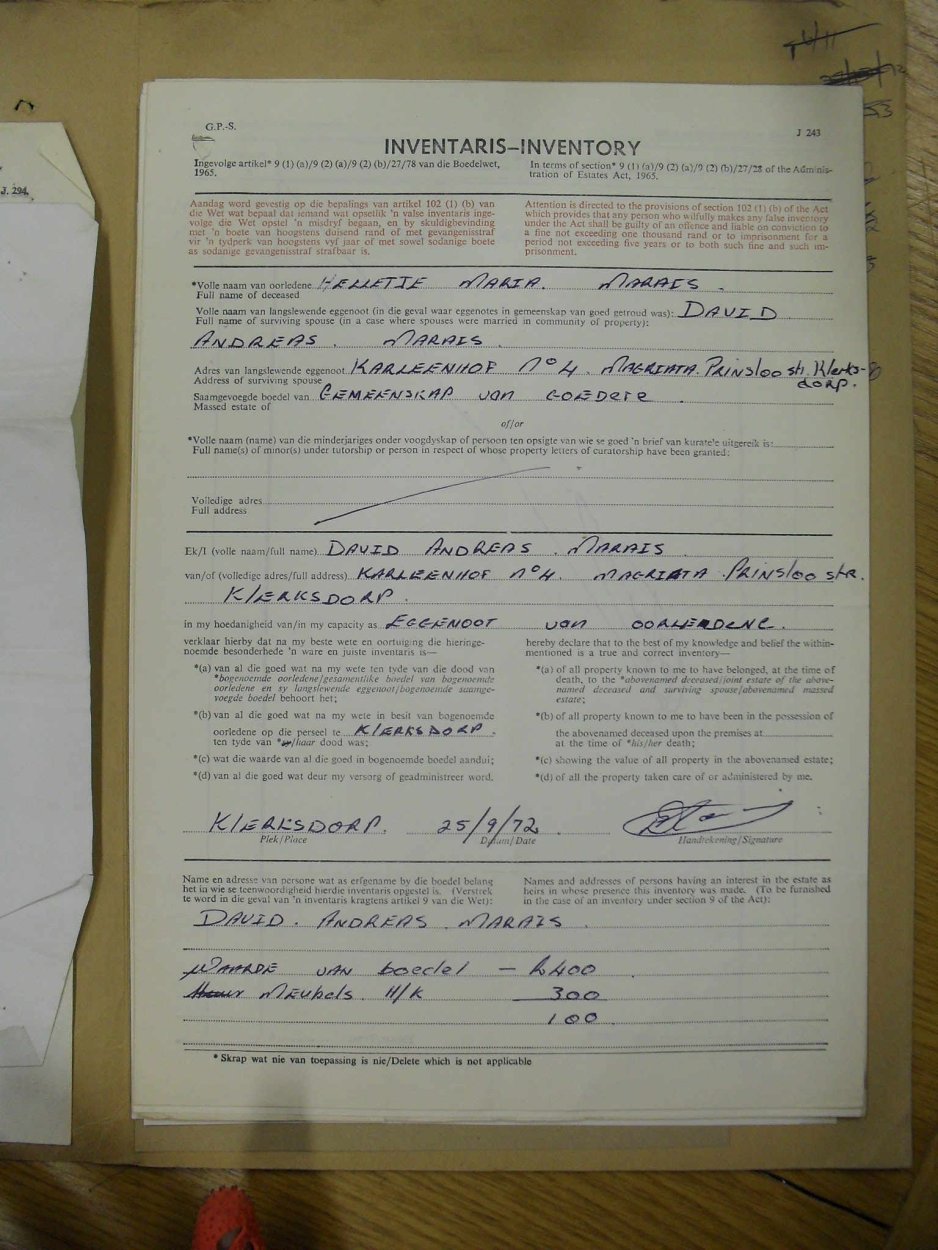 J. 294.
G.P.-S.
J 243
INVENTARIS–INVENTORY
Ingevolge artikel* 9 (1) (a)/9 (2) (a)/9 (2) (b)/27/78 van die Boedelwet,
1965.
In terms of section* 9 (1) (a)/9 (2) (a)/9 (2) (b)/27/28 of the Adminis-
tration of Estates Act, 1965.
Aandag word gevestig op die bepalings van artikel 102 (1) (b) van
die Wet wat bepaal dat iemand wat opsetlik 'n valse inventaris inge-
volge die Wet opstel 'n misdryf begaan, en by skuldigbevinding
met 'n boete van hoogstens duisend rand of met gevangenisstraf
vir 'n tydperk van hoogstens vyf jaar of met sowel sodanige boete
as sodanige gevangenisstraf strafbaar is.
Attention is directed to the provisions of section 102 (1) (b) of the Act
which provides that any person who wilfully makes any false inventory
under the Act shall be guilty of an offence and liable on conviction to
a fine not exceeding one thousand rand or to imprisonment for a
period not exceeding five years or to both such fine and such im-
prisonment.
*Volle naam van oorledene HELLETJE MARIA. MARAIS.
Full name of deceased
Volle naam van langslewende eggenoot (in die geval waar eggenotes in gemeenskap van goed getroud was): DAVID
Full name of surviving spouse (in a case where spouses were married in community of property):
ANDREAS. MARAIS.
Adres van langslewende eggenoot KARLEENHOF No 4. MAGRIATA PRINSLOO str. Klerks-
dorp.
Address of surviving spouse
Saamgevoegde boedel van GEMEENSKAP van GOEDERE
Massed estate of
of/or
*Volle naam (name) van die minderjariges onder voogdyskap of persoon ten opsigte van wie se goed 'n brief van kurate'e uitgereik is:
Full name(s) of minor(s) under tutorship or person in respect of whose property letters of curatorship have been granted:
Volledige adres
Full address
Ek/I (volle naam/full name) DAVID ANDREAS. MARAIS
van/of (volledige adres/full address) KARLEENHOF No 4. MAGRIATA PRINSLOO str.
KLERKSDORP.
in my hoedanigheid van/in my capacity as EGGENOOT van OORLEDENE.
verklaar hierby dat na my beste wete en oortuiging die hieringe-
noemde besonderhede 'n ware en juiste inventaris is—
hereby declare that to the best of my knowledge and belief the within-
mentioned is a true and correct inventory—
*(a) van al die goed wat na my wete ten tyde van die dood van
*bogenoemde oorledene/gesamentlike boedel van bogenoemde
oorledene en sy langslewende eggenoot/bogenoemde saamge-
voegde boedel behoort het;
*(a) of all property known to me to have belonged, at the time of
death, to the *abovenamed deceased/joint estate of the above-
named deceased and surviving spouse/abovenamed massed
estate;
*(b) van al die goed wat na my wete in besit van bogenoemde
oorledene op die perseel te KLERKSDORP.
ten tyde van *sy/haar dood was;
*(b) of all property known to me to have been in the possession of
the abovenamed deceased upon the premises at
at the time of *his/her death;
*(c) wat die waarde van al die goed in bogenoemde boedel aandui;
*(c) showing the value of all property in the abovenamed estate;
*(d) van al die goed wat deur my versorg of geadministreer word.
*(d) of all the property taken care of or administered by me.
KLERKSDORP. 25/9/72
Plek/Place Datum/Date Handtekening/Signature
Name en adresse van persone wat as erfgename by die boedel belang
het in wie se teenwoordigheid hierdie inventaris opgestel is. (Verstrek
te word in die geval van 'n inventaris kragtens artikel 9 van die Wet):
Names and addresses of persons having an interest in the estate as
heirs in whose presence this inventory was made. (To be furnished
in the case of an inventory under section 9 of the Act):
DAVID. ANDREAS. MARAIS
WAARDE VAN boedel – R400
MEUbels H/K 300
100
* Skrap wat nie van toepassing is nie/Delete which is not applicable